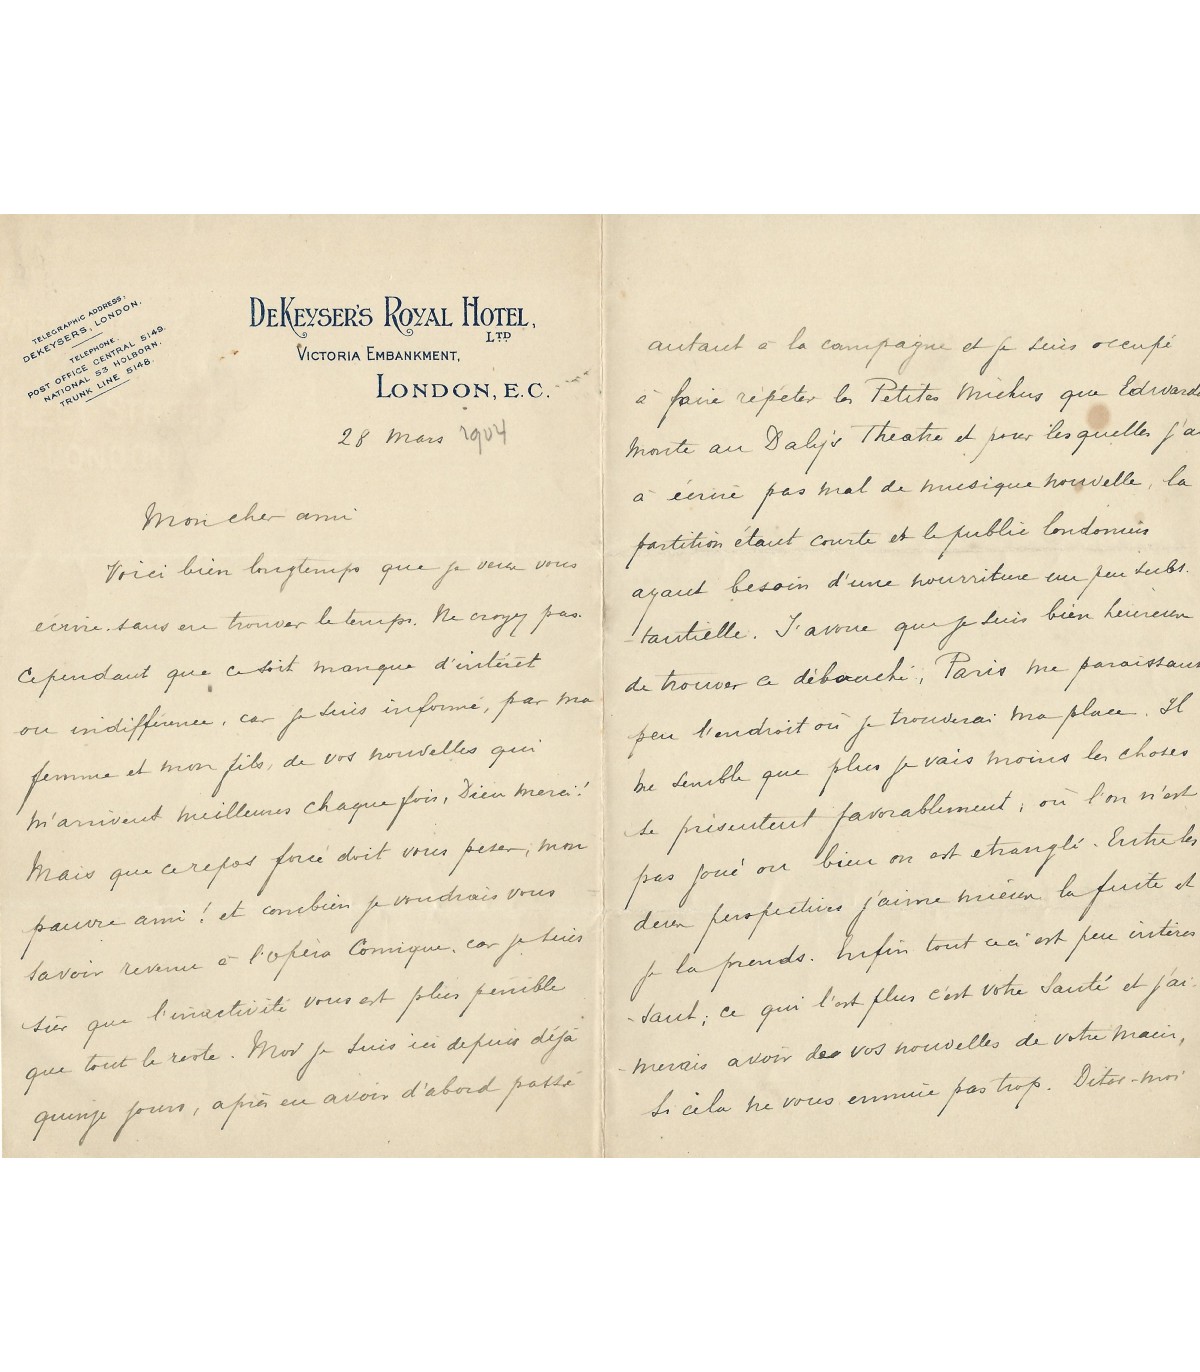 TELEGRAPHIC ADDRESS:
DEKEYSERS, LONDON.
TELEPHONE.
POST OFFICE CENTRAL 5149.
NATIONAL 53 HOLBORN.
TRUNK LINE 5148.
DEKEYSER'S ROYAL HOTEL,
LTD
VICTORIA EMBANKMENT,
LONDON, E.C.
28 mars 1904
Mon cher ami
Voici bien longtemps que je veux vous
écrire sans en trouver le temps. Ne croyez pas
cependant que ce soit manque d'intérêt
ou indifférence, car je suis informé, par ma
femme et mon fils, de vos nouvelles qui
m'arrivent meilleures chaque fois, Dieu merci!
Mais que ce repos forcé doit vous peser, mon
pauvre ami! et combien je voudrais vous
savoir revenu à l'opéra Comique, car je suis
sûr que l'inactivité vous est plus pénible
que tout le reste. Moi je suis ici depuis déjà
quinze jours, après en avoir d'abord passé
autant à la campagne et je suis occupé
à faire répéter les Petites Michus que Edwardes
monte au Daly's Theatre et pour lesquelles j'ai
à écrire pas mal de musique nouvelle, la
partition étant courte et le public londonnien
ayant besoin d'une nourriture un peu subs-
-tantielle. J'avoue que je suis bien heureux
de trouver ce débouché, Paris me paraissant
peu l'endroit où je trouverai ma place. Il
me semble que plus je vais moins les choses
se présentent favorablement; où l'on n'est
pas joué ou bien on est etranglé. Entre les
deux perspectives j'aime mieux la fuite et
je la prends. Enfin tout ceci est peu intéres
-sant; ce qui l'est plus c'est votre Santé et j'ai-
-merais avoir de vos nouvelles de votre main,
si cela ne vous ennuie pas trop. Dites-moi